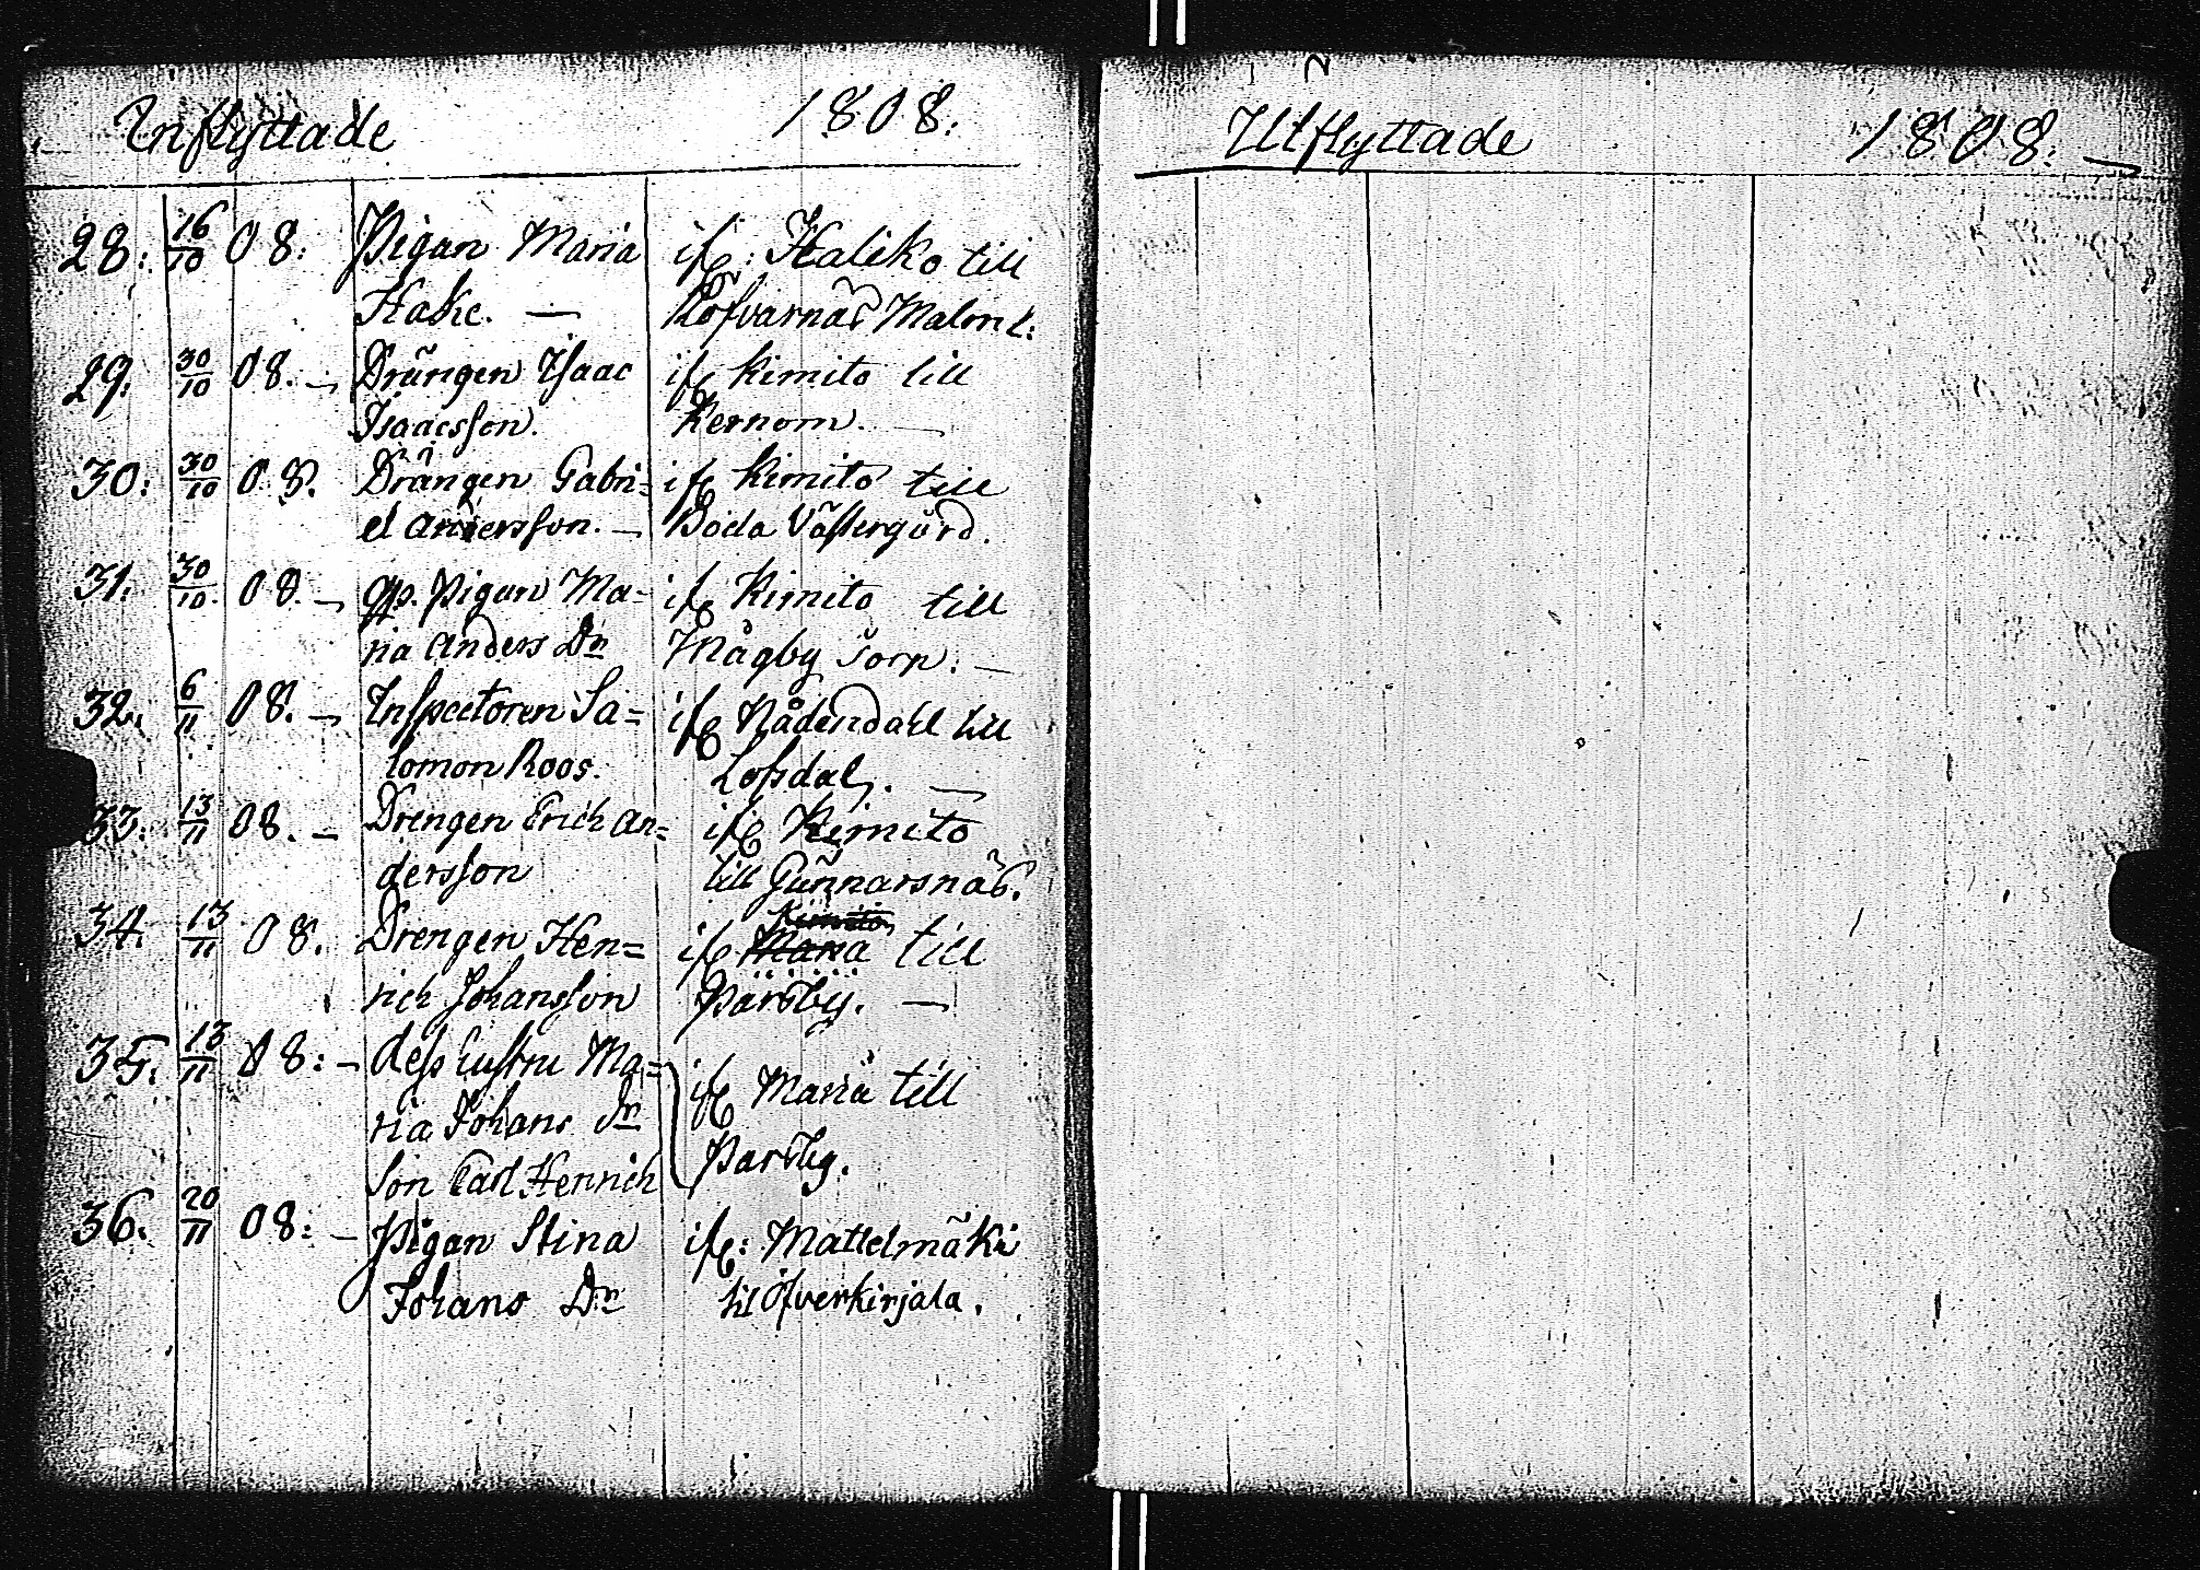 Inflyttade 1808.
28. 16/10 08. Pigan Maria ifr: Haliko till
Hake. — Löfvarnäs Malmb:
29. 30/10 08. — Drängen Isaac ifr Kimito till
Isaacsson. Kernom. —
30. 30/10 08. Drängen Gabri= ifr Kimito till
el Andersson. — Böda Västergård.
31. 30/10 08. — Pigan Ma= ifr Kimito till
ria Anders Dr Mågby Torp. —
32. 6/11 08. — Inspectoren Sa= ifr Nådendahl till
lomon Roos. Lofsdal. —
33. 13/11 08. — Drengen Erich An= ifr Kimito
dersson till Gunnarsnäs.
Kimito
34. 13/11 08. Drengen Hen= ifr Maria till
rich Johansson Pärsby. —
35. 13/11 08: — dess hustru Ma= ifr Maria till
ria Johans dr
Son Carl Henrich Parsby.
36. 20/11 08: — Pigan Stina ifr: Mattelmäki
Johans Dr till Öfverkirjala.
Utflyttade 1808. —